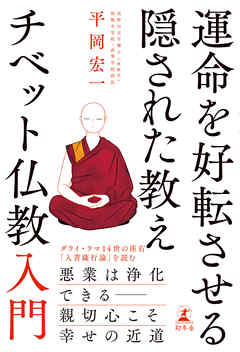 運命を好転させる
隠された教え
チベット仏教入門
平岡宏一
ダライ・ラマ14世の座右
「入菩薩行論」を読む
悪業は浄化
できる――
親切心こそ
幸せの近道
幻冬舎